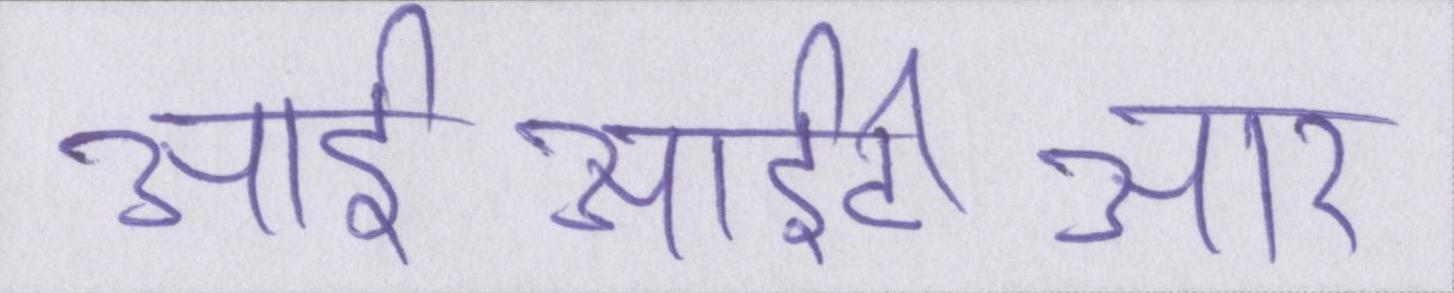 आई आईटी आर